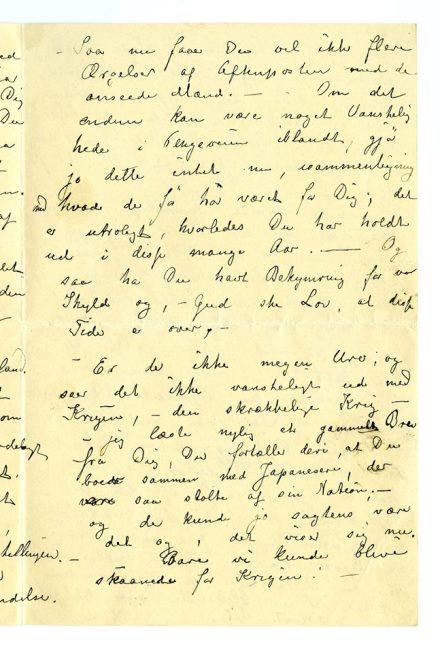 - Saa nu faar Du vel ikke flere
Ærgelser af Aftenposten med de
anseede Mænd. — - Om det
endnu kan være noget Vanskelig
hede i Pengeveien iblandt, gjø
jo dette intet nu, i sammenligning
med hvad de få har været for Dig; det
er utroligt, hvorledes Du har holdt
ud i disse mange Aar. — Og
saa ha Du havt Bekymring for vor
Skyld og, - Gud ske Lov, at disse
Tide er over, -
- Er de ikke megen Uro; og
seer det ikke vanskeligt ud med
Krigen, - den skrækkelige Krig -
- jeg læste nylig et gammelt Brev
fra Dig, Du fortalte deri, at Du
boede sammen med Japanesere, der
vare saa stolte af sin Nation. -
og de kunde jo sagtens være
det og, det viser sig nu.
- Bare vi kunde blive
skaanede for Krigen! -
land.
om
t.
tillingen. -
ndelse.